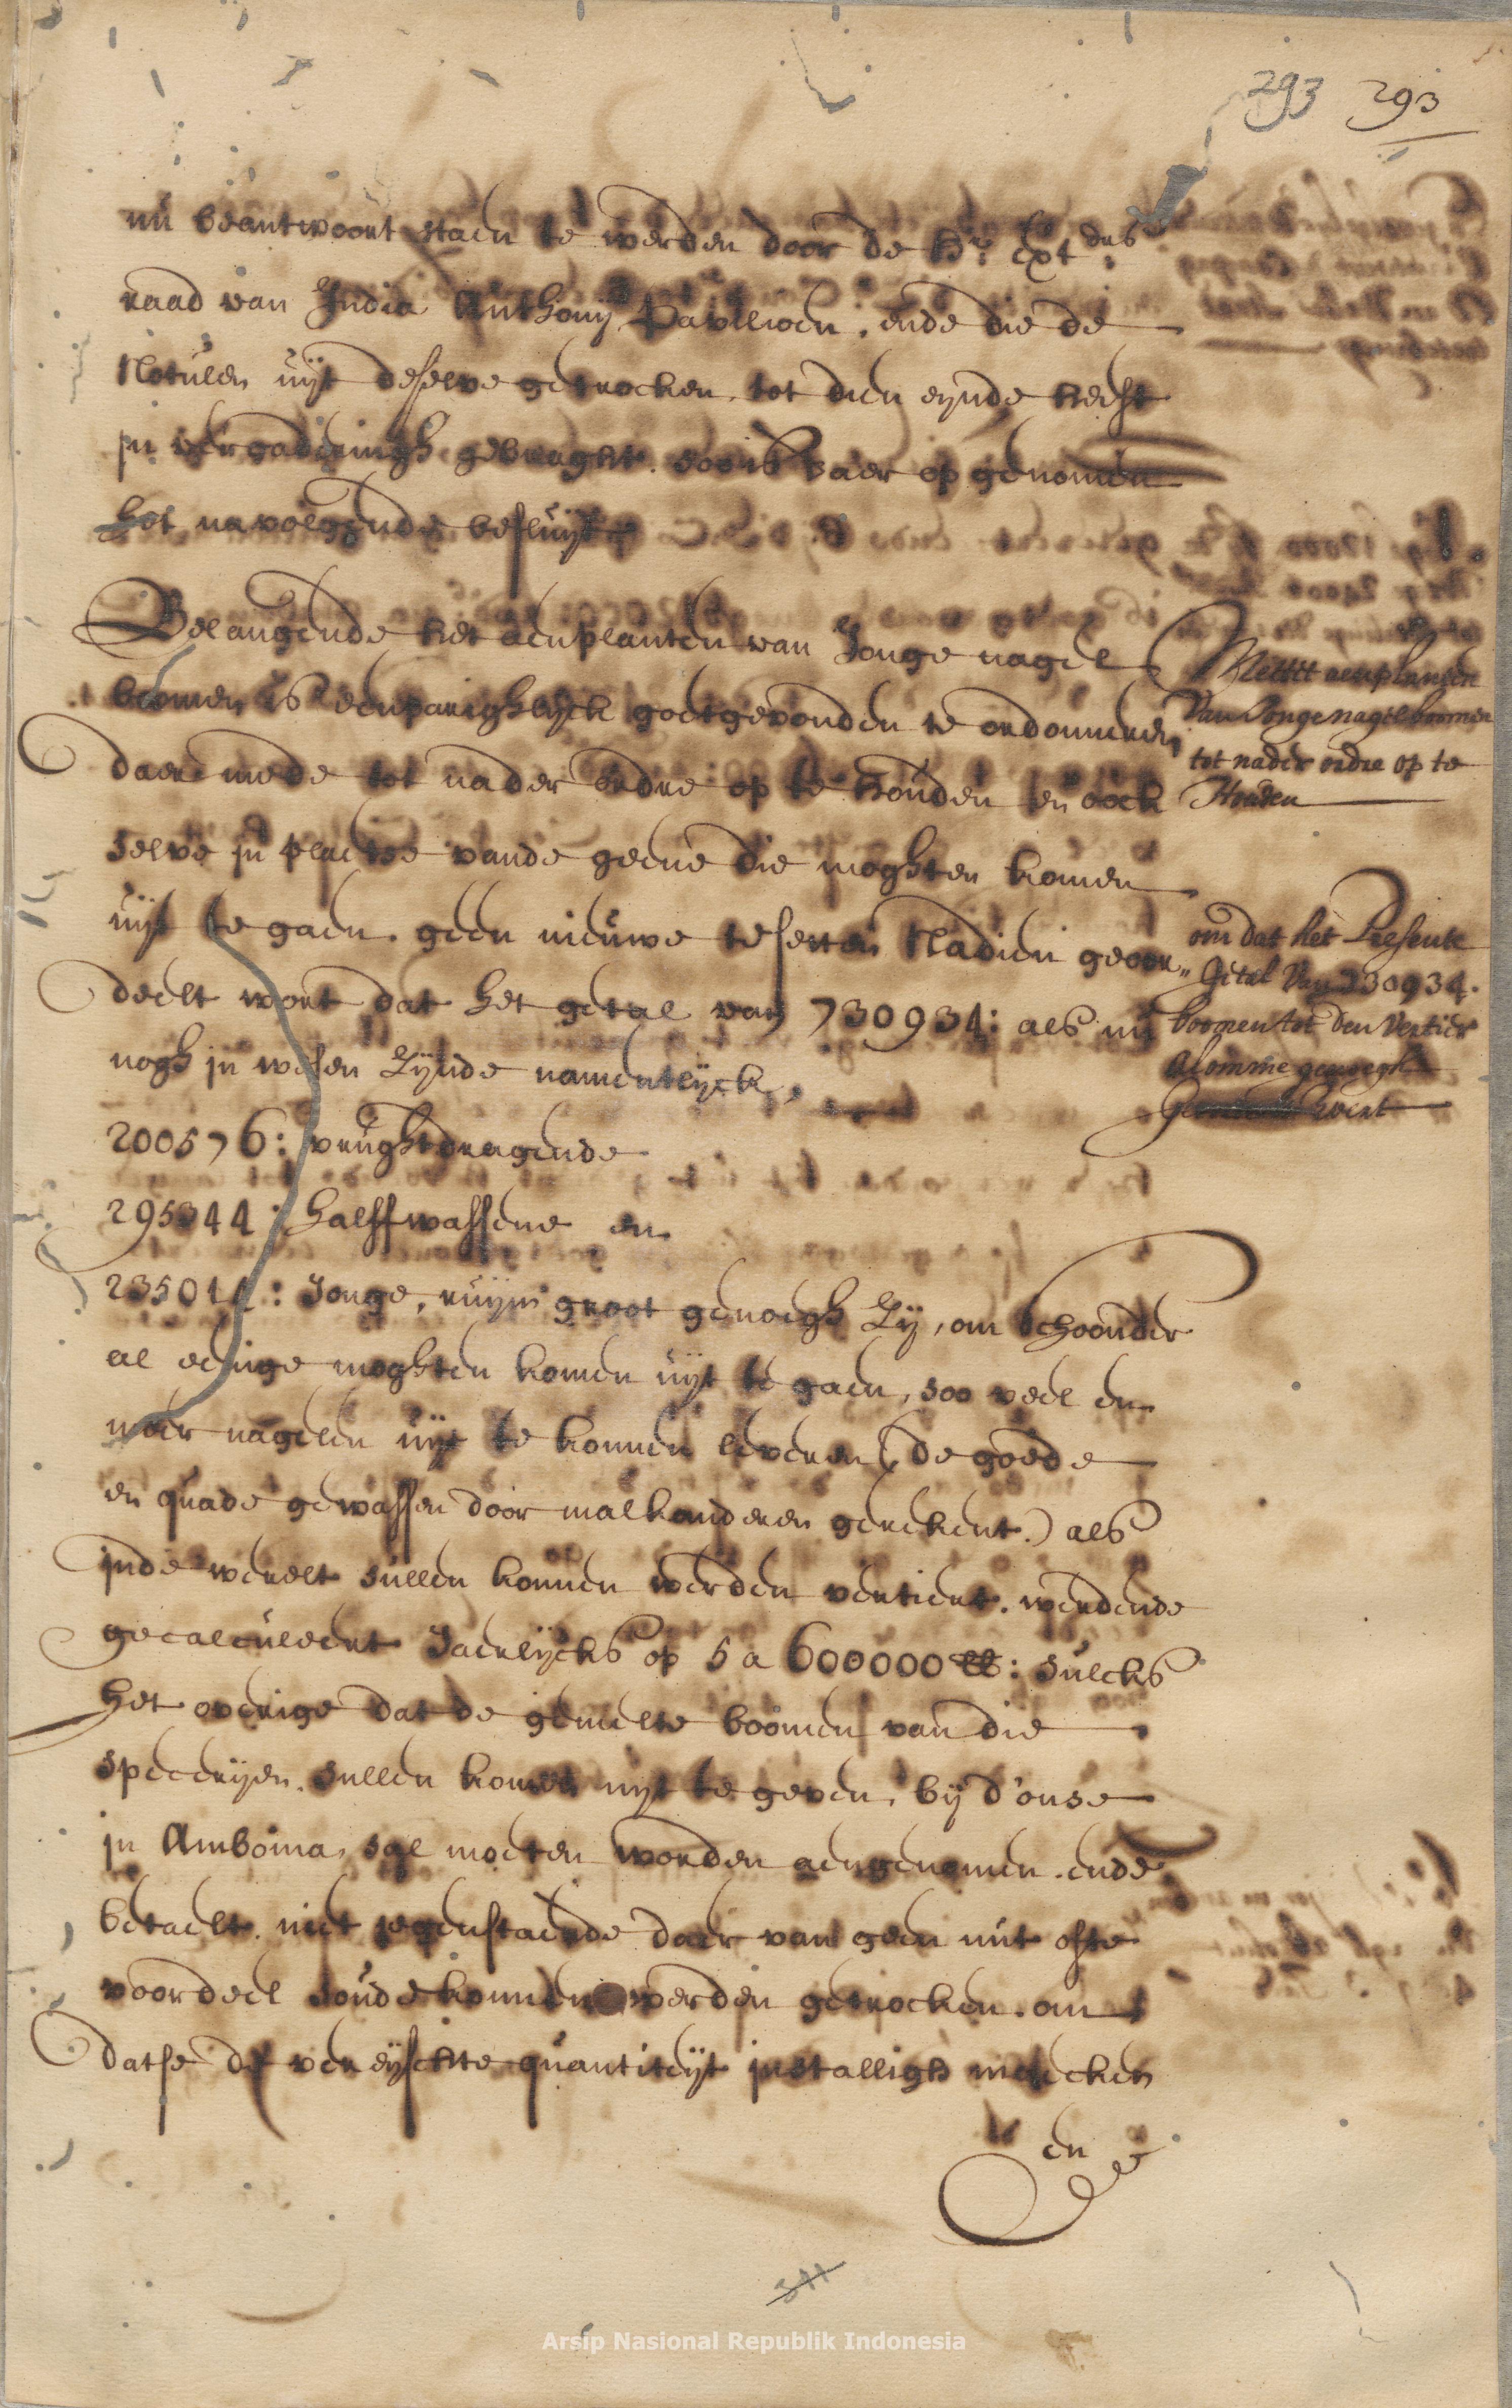 293 293
nu beantwoort staen te werden door de Hr. Ext.dns
raad van India Anthonij Pavilioen, ende die de
Notulen uijt deselve getrocken, tot dien eijnde heeft
in vergaderingh gebraght. soo is daer op genomen
het navolgende besluijt
Belangende het aenplanten van Jonge nagel
boomen is eenparighlijck goetgevonden te ordonneren
daer mede tot nader ordre op te houden en oock
selve in plaetse vande geene die moghten komen
uijt te gaen, geen nieuwe te setten Nadien geoor„
deelt wort dat het getal van 730934: als nu
nogh in wesen Zijnde namentlijck,
200576: vrughtdragende
295344: halffwassene en
235014: Jonge, ruijm groot genoegh Zij, om schoonder
al eenige moghten komen uijt te gaen, soo veel en
meer nagelen uijt te konnen leveren (de goede
en quade gewassen door malkanderen gerekent) als
inde werelt sullen konnen werden vertiert. werdende
gecalculeert Jaerlijcks op 5 a 600000 lb: sulcks
het overige dat de gemelte boomen van die
specerijen sullen komen uijt te geven, bij d'onse
in Amboina, sal moeten worden aengenomen ende
betaelt. niet tegenstaende daer van geen nut ofte
voordeel soude konnen werden getrocken. om
datse de vereijschte quantiteijt installigh maecken
en
Mettet aenplanten
Van Jonge nagelboomen
tot nader ordre op te
Houden
om dat het Presente
Getal Van 730934.
boomen tot den Vertier
alomme genoegh
Wert
Arsip Nasional Republik Indonesia